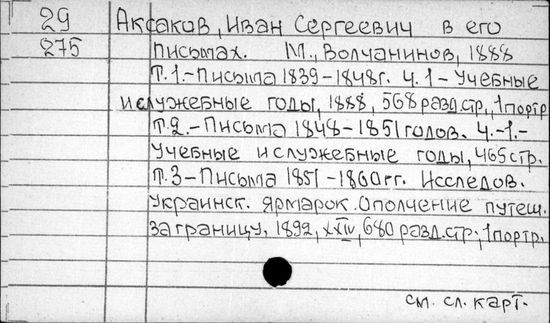 29 Аксаков, Иван Сергеевич в его
275 Письмах. М., Волчанинов, 1888
Т.1.-Письма 1839-1848г. Ч.1-Учебные
и служебные годы, 1888, 568 разд.стр., 1портр
Т.2.-Письма 1848-1851 годов. Ч.-1.-
Учебные и служебные годы, 465стр.
Т.3-Письма 1851-1860гг. Исследов.
Украинск. ярмарок. Ополчение путеш.
заграницу, 1892, XXIV, 680 разд.стр., 1портр.
см. сл. карт.